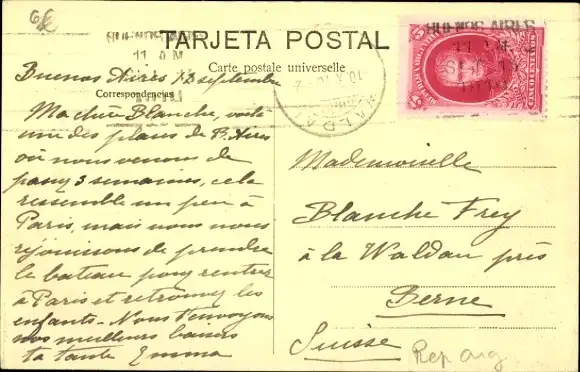 TARJETA POSTAL
Carte postale universelle
Correspondencias
BUENOS AIRES
11 AM
Buenos Aires 13 septembre
Ma chère Blanche, voilà
une des places de B. Aires
où nous venons de
passer 3 semaines, cela
ressemble un peu à
Paris, mais nous nous
réjouissons de prendre
le bateau pour rentrer
à Paris et retrouver les
enfants. Nous t'envoyons
nos meilleurs baisers
ta tante Emma
BUENOS AIRES
11 AM
Mademoiselle
Blanche Frey
à la Waldau près
Berne
Suisse
Rep arg